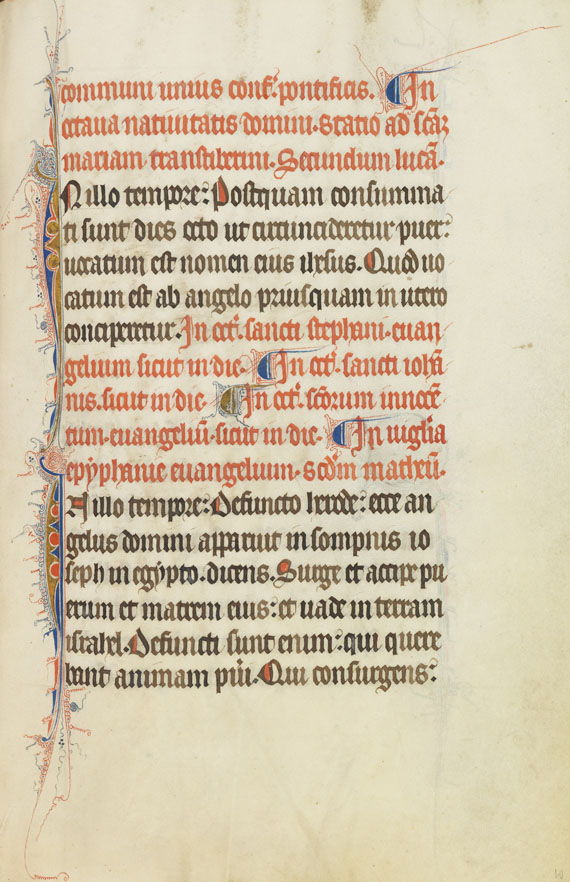 communi unius conf. pontificis. In
octaua natiuitatis domini. Statio ad scām
mariam transtiberini. Secundum lucā.
N illo tempore: Postquam consumma
ti sunt dies octo ut circuncideretur puer:
uocatum est nomen eius ihesus. Quod uo
catum est ab angelo priusquam in utero
conciperetur. In oct. sancti stephani. euan
gelium sicut in die. In oct. sancti iohā
nis. sicut in die In oct. scōrum innocē
tum. euangeliū. sicut in die. In uiglia
epyphanie euangelium. scdm matheū.
A illo tempore: Defuncto herode: ecce an
gelus domini apparuit in sompnis io
seph in egypto. dicens. Surge et accipe pu
erum et matrem eius: et uade in terram
israhel. Defuncti sunt enim: qui quere
bant animam pūi. Qui consurgens: